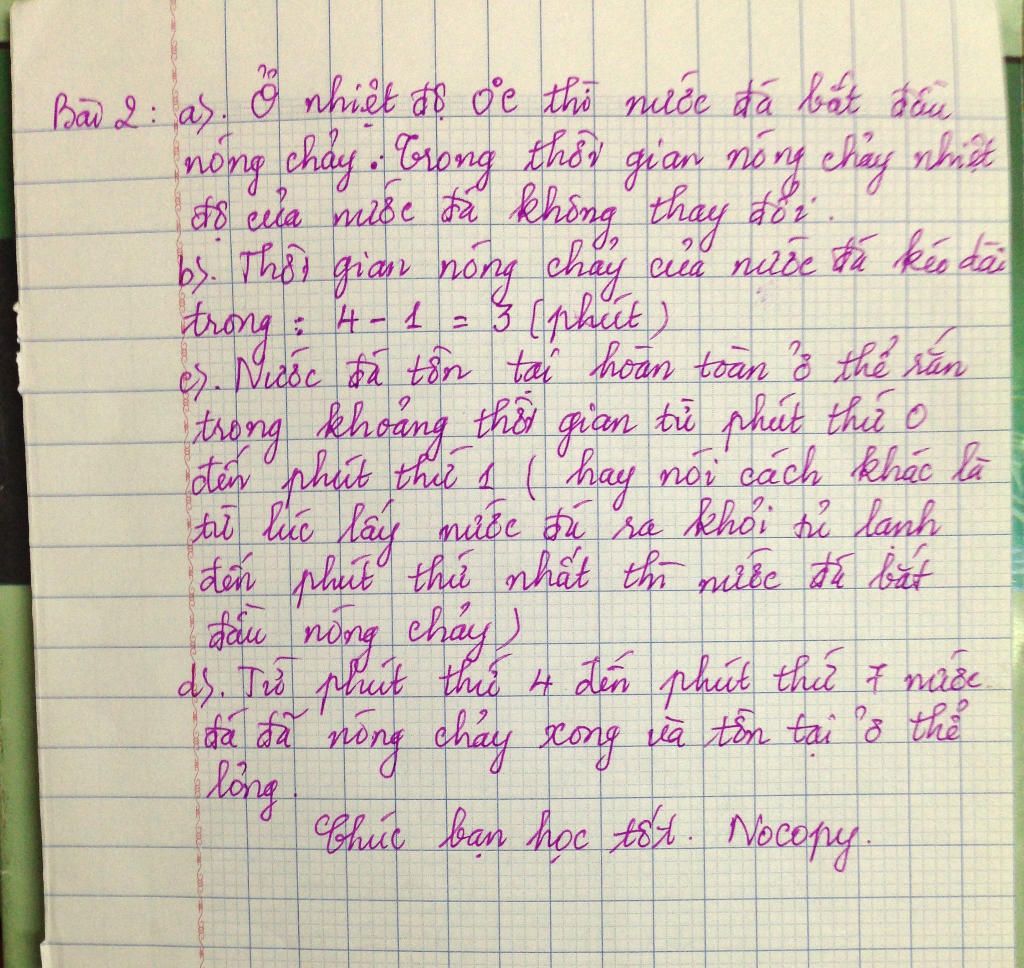 Bài 2: a). Ở nhiệt độ 0°C thì nước đá bắt đầu
nóng chảy. Trong thời gian nóng chảy nhiệt
độ của nước đá không thay đổi.
b). Thời gian nóng chảy của nước đá kéo dài
trong: 4 - 1 = 3 (phút)
c). Nước đá tồn tại hoàn toàn ở thể rắn
trong khoảng thời gian từ phút thứ 0
đến phút thứ 1 ( hay nói cách khác là
từ lúc lấy nước đá ra khỏi tủ lạnh
đến phút thứ nhất thì nước đá bắt
đầu nóng chảy)
d). Từ phút thứ 4 đến phút thứ 7 nước
đá đã nóng chảy xong và tồn tại ở thể
lỏng.
Chúc bạn học tốt. Nocopy.